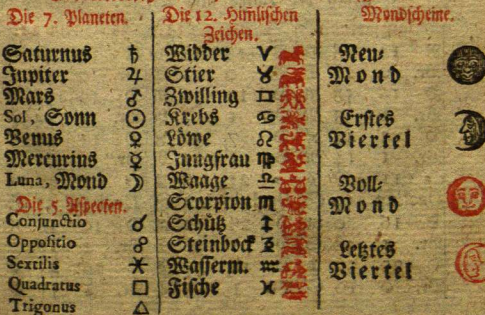 Die 7. Planeten.
Saturnus ♄
Jupiter ♃
Mars ♂
Sol, Sonn ☉
Venus ♀
Mercurius ☿
Luna, Mond ☽
Die 5. Aspecten.
Conjunctio ☌
Oppositio ☍
Sextilis ⚹
Quadratus □
Trigonus △
Die 12. Him̄lischen
Zeichen.
Widder ♈
Stier ♉
Zwilling ♊
Krebs ♋
Löwe ♌
Jungfrau ♍
Waage ♎
Scorpion ♏
Schütz ♐
Steinbock ♑
Wasserm. ♒
Fische ♓
Mondscheine.
Neu-
Mond
Erstes
Viertel
Voll-
Mond
Letztes
Viertel